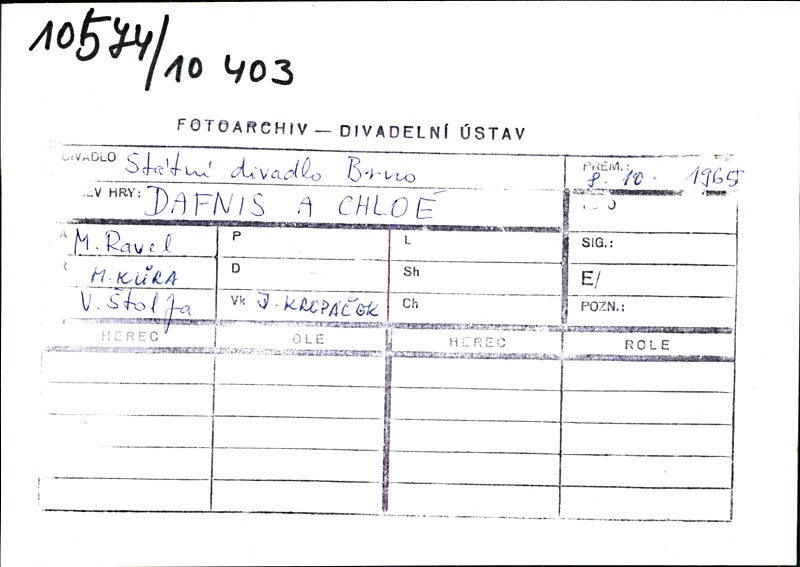 10574/10 403
FOTOARCHIV — DIVADELNÍ ÚSTAV
DIVADLO Státní divadlo Brno PREM.: 8. 10. 1965
EV HRY: DAFNIS A CHLOÉ
A M. Ravel P L SIG.:
R M. KŮRA D Sh E/
V. Štolfa Vk J. KROPÁČEK Ch POZN.:
HEREC OLE HEREC ROLE